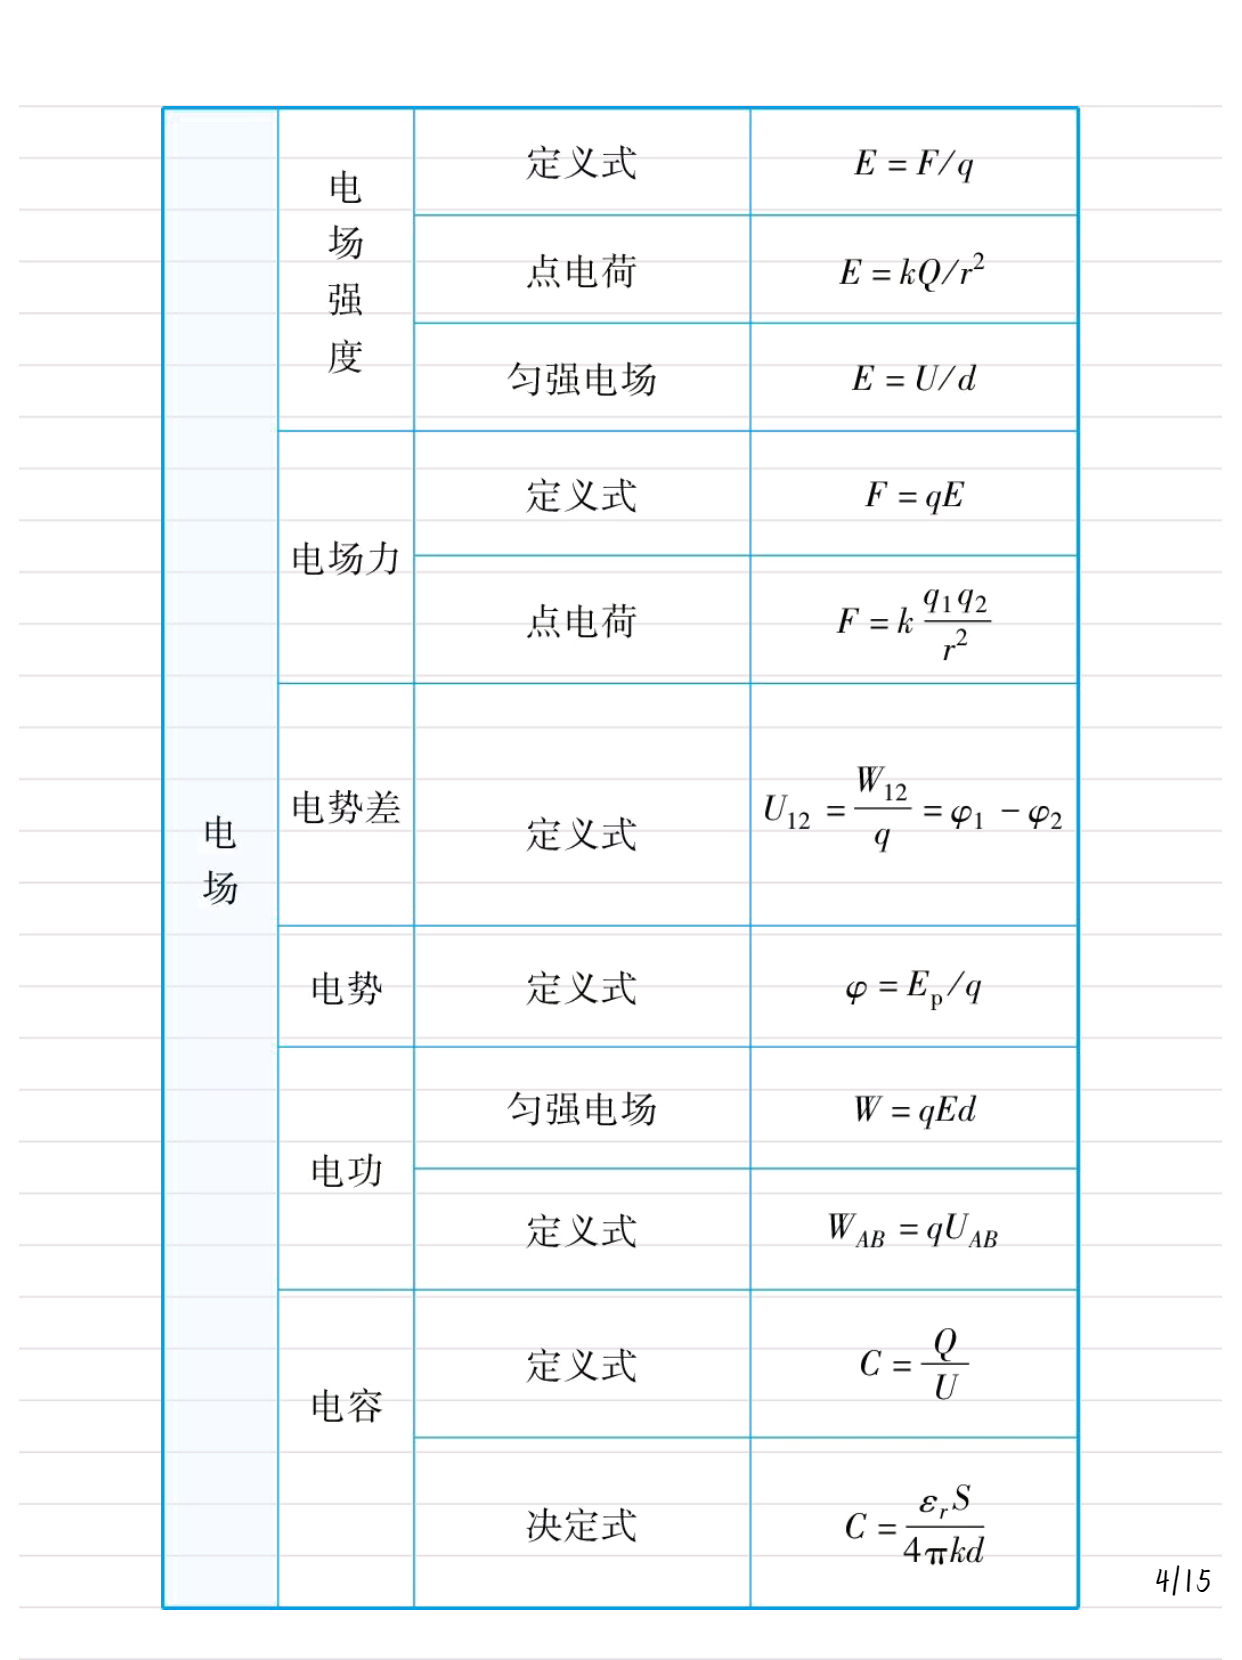 电场
电场强度
定义式 E = F/q
点电荷 E = kQ/r²
匀强电场 E = U/d
电场力
定义式 F = qE
点电荷 F = k q₁q₂/r²
电势差 定义式 U₁₂ = W₁₂/q = φ₁ − φ₂
电势 定义式 φ = Eₚ/q
电功
匀强电场 W = qEd
定义式 W_AB = qU_AB
电容
定义式 C = Q/U
决定式 C = εᵣS/4πkd
4/15